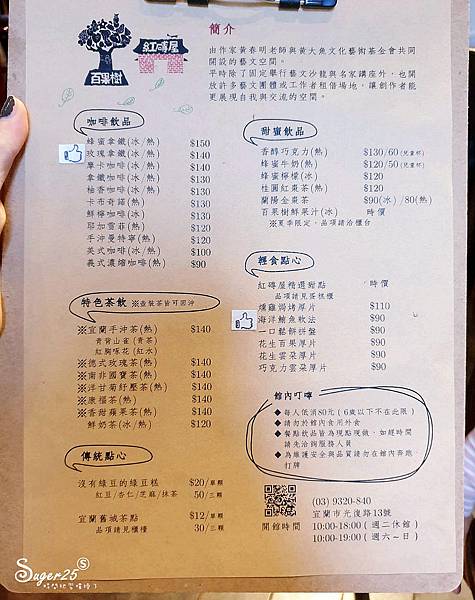 百果樹
紅磚屋
簡介
由作家黃春明老師與黃大魚文化藝術基金會共同
開設的藝文空間。
平時除了固定舉行藝文沙龍與名家講座外，也開
放許多藝文團體或工作者租借場地，讓創作者能
更展現自我與交流的空間。
咖啡飲品
蜂蜜拿鐵(冰/熱) $150
玫瑰拿鐵(冰/熱) $140
摩卡咖啡(冰/熱) $140
拿鐵咖啡(冰/熱) $130
柚香咖啡(冰/熱) $130
卡布奇諾(熱) $130
鮮檸咖啡(冰) $130
耶加雪菲(熱) $120
手沖曼特寧(熱) $120
美式咖啡(冰/熱) $100
義式濃縮咖啡(熱) $90
特色茶飲 ※壺裝茶皆可回沖
※宜蘭手沖茶(熱) $140
青背山雀 (青茶)
紅胸啄花 (紅水)
※德式玫瑰茶(熱) $140
※南非國寶茶(熱) $140
※洋甘菊紓壓茶(熱) $140
※康福茶(熱) $140
※香甜蘋果茶(熱) $140
鮮奶茶(冰/熱) $120
傳統點心
沒有綠豆的綠豆糕 $20/單顆
紅豆/杏仁/芝麻/抹茶 50/三顆
宜蘭舊城茶點 $12/單顆
品項請見櫃檯 30/三顆
甜蜜飲品
香醇巧克力(熱) $130/60(兒童杯)
蜂蜜牛奶(熱) $120/50(兒童杯)
蜂蜜檸檬(冰) $120
桂圓紅棗茶(熱) $120
蘭陽金棗茶 $90(冰)/80(熱)
百果樹鮮果汁(冰) 時價
※夏季限定，品項請洽櫃台
輕食點心
紅磚屋精選甜點 時價
品項請見蛋糕櫃
燻雞焗烤厚片 $110
海洋鮪魚軟法 $90
一口鬆餅拼盤 $90
花生百果厚片 $90
花生雲朵厚片 $90
巧克力雲朵厚片 $90
館內叮嚀
◆每人低消80元(6歲以下不在此限)
◆請勿於館內食用外食
◆餐點飲品皆為現點現做，如趕時間
請先洽詢服務人員
◆為維護安全與品質請勿在館內奔跑
打牌
(03) 9320-840
宜蘭市光復路13號
開館時間 10:00-18:00 (週二休館)
10:00-19:00 (週六~日)
Suger25